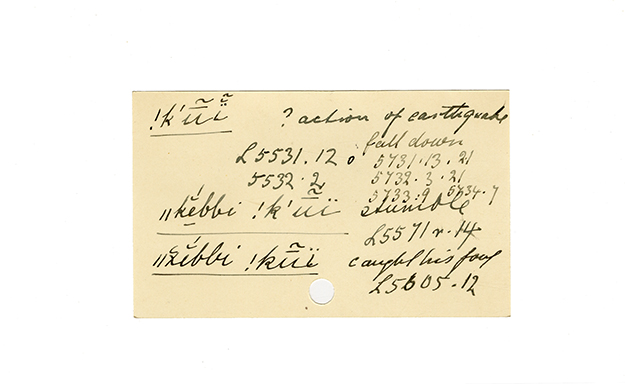 !k'ũï ? action of earthquake
fall down
L5531.12 5731.13.21
5532.2 5732.3.21
5733.9 5734.7
"k̆ĕbbi !k'ũï stumble
L5571 r.14
"k̆ĕbbi !kũï caught his
L5605.12